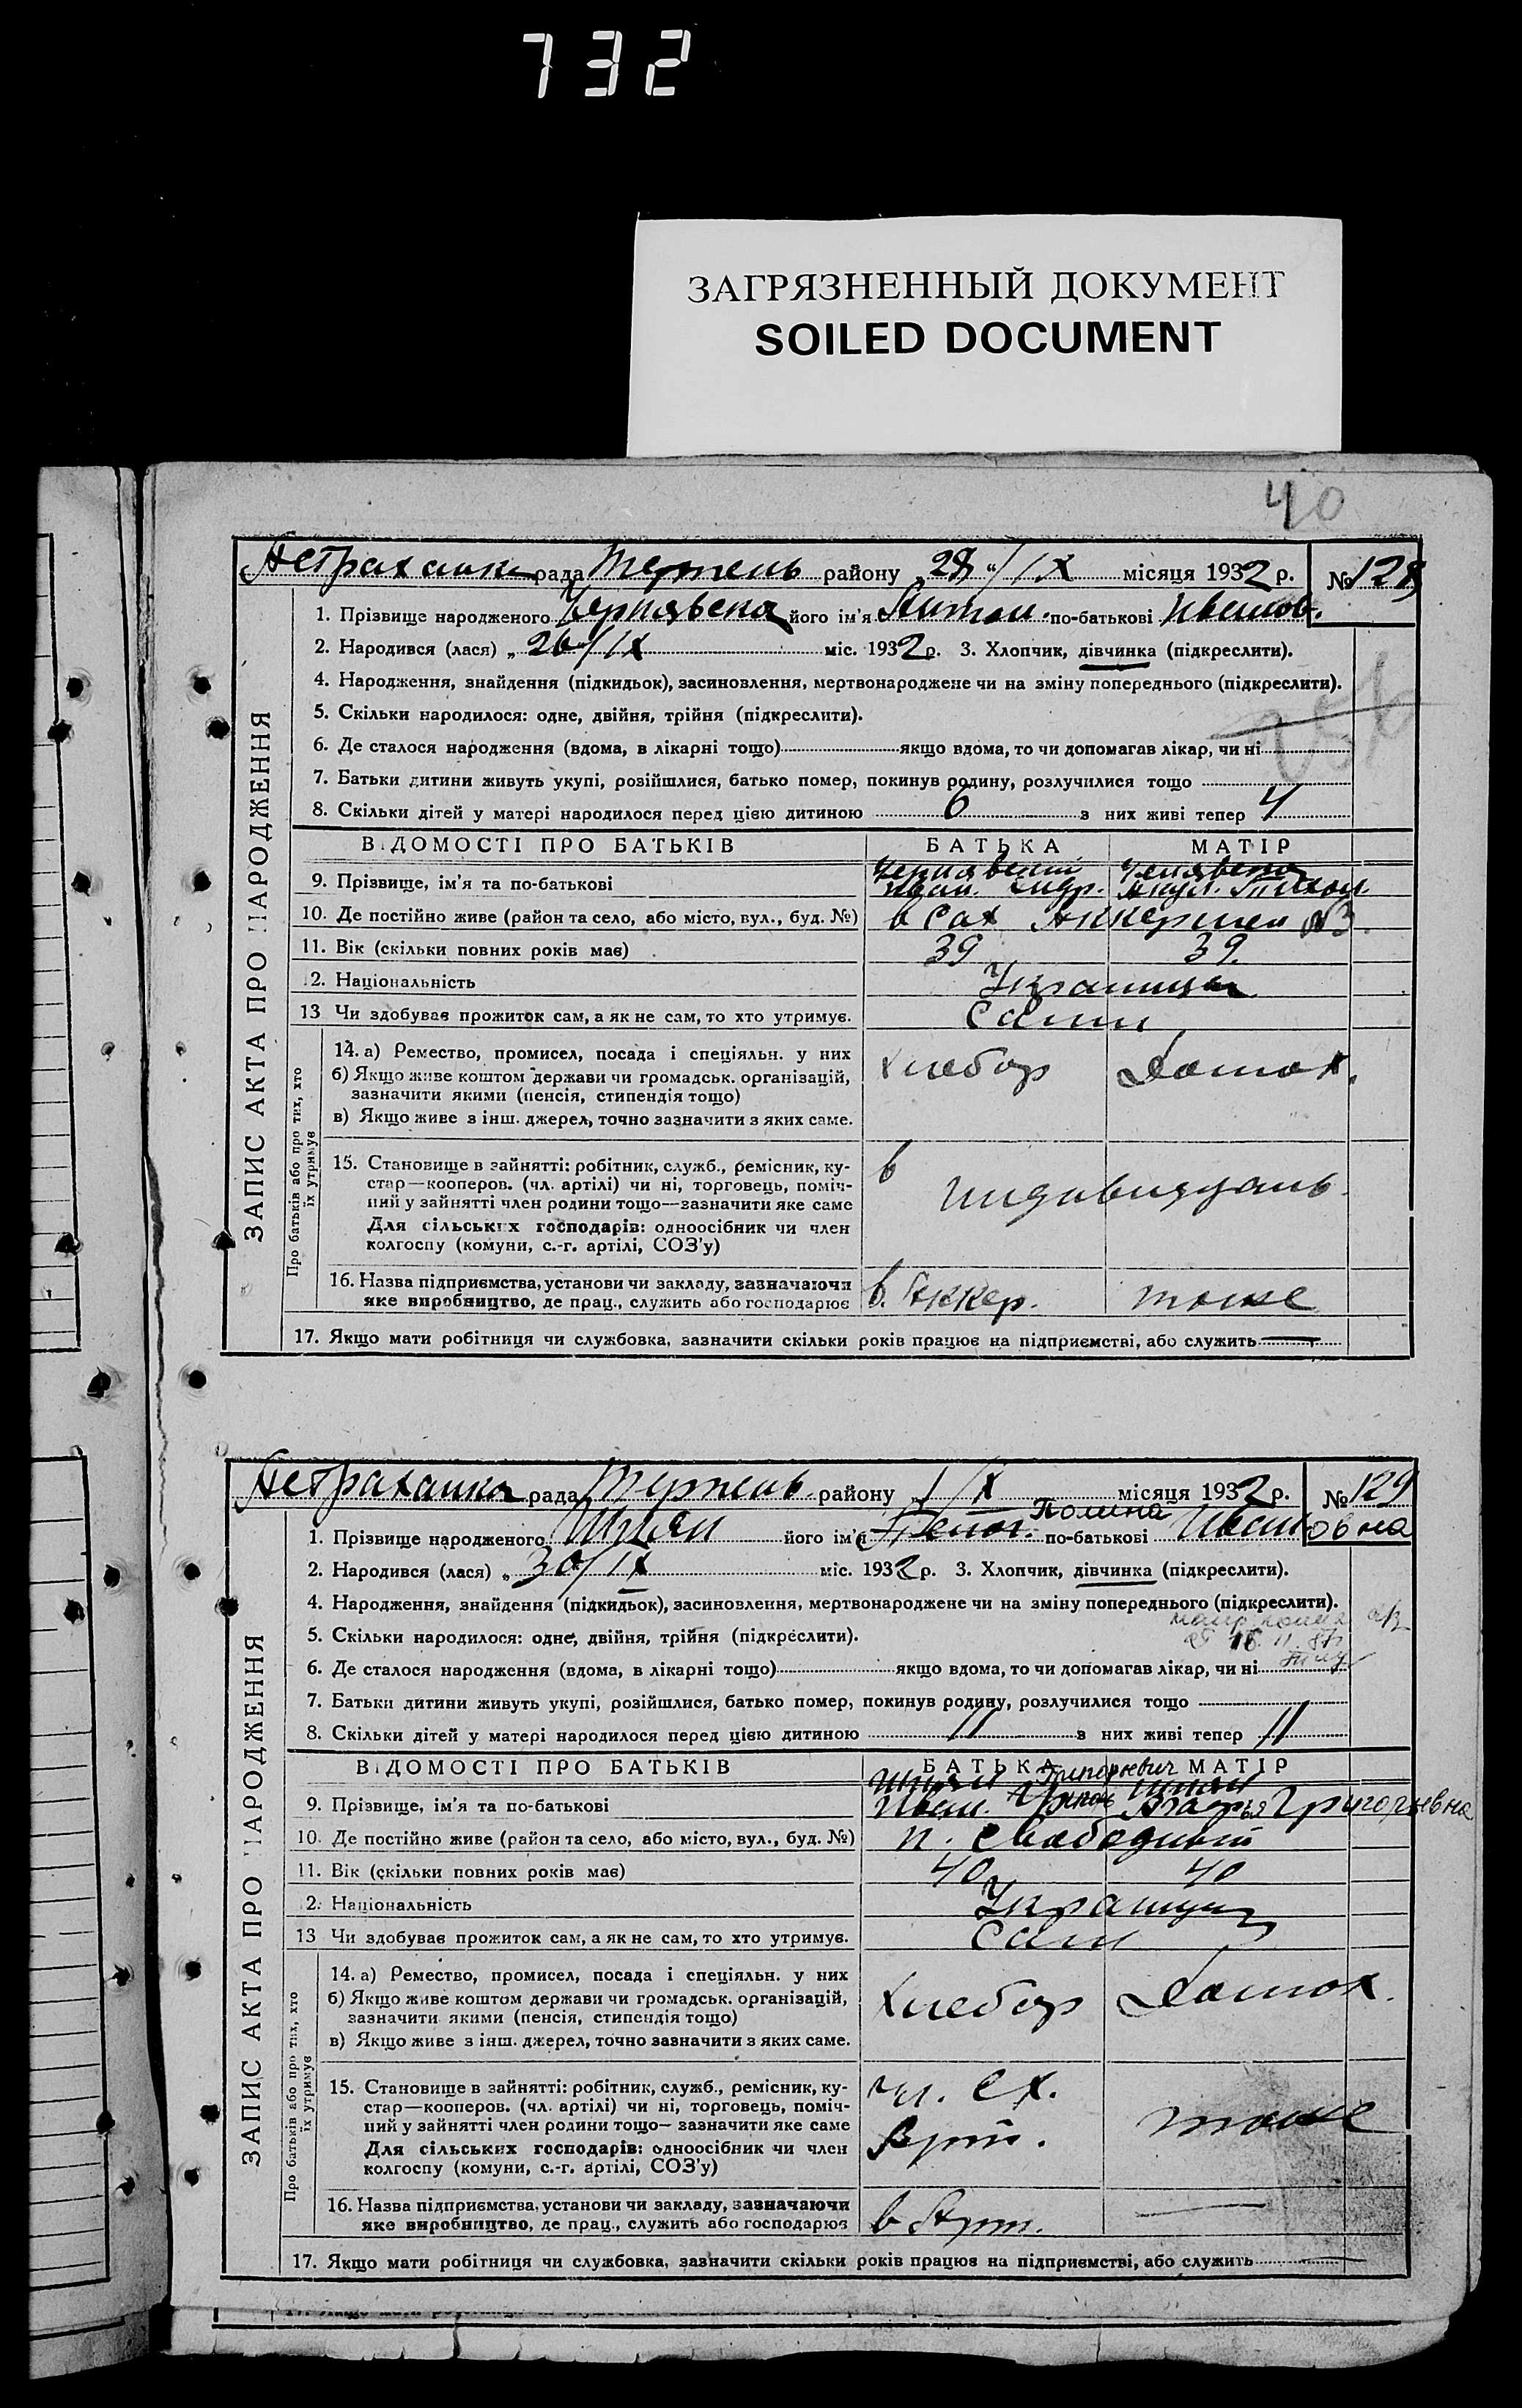 732
ЗАГРЯЗНЕННЫЙ ДОКУМЕНТ
SOILED DOCUMENT
40
Астраханка рада район у „28“/IX місяця 1932 р. № 128
ЗАПИС АКТА ПРО НАРОДЖЕННЯ
1. Прізвище народженого його ім'я по-батькові Иванов.
2. Народився (лася) „26/IX міс. 1932 р. 3. Хлопчик, дівчинка (підкреслити).
4. Народження, знайдення (підкидьок), засиновлення, мертвонароджене чи на зміну попереднього (підкреслити).
5. Скільки народилося: одне, двійня, трійня (підкреслити).
6. Де сталося народження (вдома, в лікарні тощо) якщо вдома, то чи допомагав лікар, чи ні
7. Батьки дитини живуть укупі, розійшлися, батько помер, покинув родину, розлучилися тощо
8. Скільки дітей у матері народилося перед цією дитиною 6 з них живі тепер 4
ВІДОМОСТІ ПРО БАТЬКІВ БАТЬКА МАТІР
9. Прізвище, ім'я та по-батькові Иван.
10. Де постійно живе (район та село, або місто, вул., буд. №) в Сах Аккермен №3
11. Вік (скільки повних років має) 39 39.
2. Національність Украинцы
13 Чи здобував прожиток сам, а як не сам, то хто утримує. Сами
Про батьків або про тих, хто їх утримує
14. а) Ремество, промисел, посада і спеціяльн. у них Хлебор Домох.
б) Якщо живе коштом держави чи громадськ. організацій,
зазначити якими (пенсія, стипендія тощо)
в) Якщо живе з інш. джерел, точно зазначити з яких саме.
15. Становище в зайнятті: робітник, служб., ремісник, ку-
стар—кооперов. (чл. артілі) чи ні, торговець, поміч-
ний у зайнятті член родини тощо—зазначити яке саме
Для сільських господарів: одноосібник чи член
колгоспу (комуни, с.-г. артілі, СОЗ'у)
16. Назва підприємства, установи чи закладу, зазначаючи в. Аккер. тоже
яке виробництво, де прац., служить або господарює
17. Якщо мати робітниця чи службовка, зазначити скільки років працює на підприємстві, або служить —
Астраханка рада району 1/X місяця 1932 р. № 129
ЗАПИС АКТА ПРО НАРОДЖЕННЯ
Полина
1. Прізвище народженого Шпян його ім'я по-батькові Ивановна
2. Народився (лася) „30/IX міс. 1932 р. 3. Хлопчик, дівчинка (підкреслити).
4. Народження, знайдення (підкидьок), засиновлення, мертвонароджене чи на зміну попереднього (підкреслити).
5. Скільки народилося: одне, двійня, трійня (підкреслити).
6. Де сталося народження (вдома, в лікарні тощо) якщо вдома, то чи допомагав лікар, чи ні
7. Батьки дитини живуть укупі, розійшлися, батько помер, покинув родину, розлучилися тощо
8. Скільки дітей у матері народилося перед цією дитиною 11 з них живі тепер 11
ВІДОМОСТІ ПРО БАТЬКІВ БАТЬКА МАТІР
Григорьевич
9. Прізвище, ім'я та по-батькові Иван. Григорьевна
10. Де постійно живе (район та село, або місто, вул., буд. №) п. Свободный
11. Вік (скільки повних років має) 40 40
2. Національність Украинцы
13 Чи здобував прожиток сам, а як не сам, то хто утримує. Сами
Про батьків або про тих, хто їх утримує
14. а) Ремество, промисел, посада і спеціяльн. у них Хлебор Домох.
б) Якщо живе коштом держави чи громадськ. організацій,
зазначити якими (пенсія, стипендія тощо)
в) Якщо живе з інш. джерел, точно зазначити з яких саме.
15. Становище в зайнятті: робітник, служб., ремісник, ку- чл. сх.
стар—кооперов. (чл. артілі) чи ні, торговець, поміч- тоже
ний у зайнятті член родини тощо— зазначити яке саме Арт.
Для сільських господарів: одноосібник чи член
колгоспу (комуни, с.-г. артілі, СОЗ'у)
16. Назва підприємства, установи чи закладу, зазначаючи в Арт. —
яке виробництво, де прац., служить або господарює
17. Якщо мати робітниця чи службовка, зазначити скільки років працює на підприємстві, або служить —